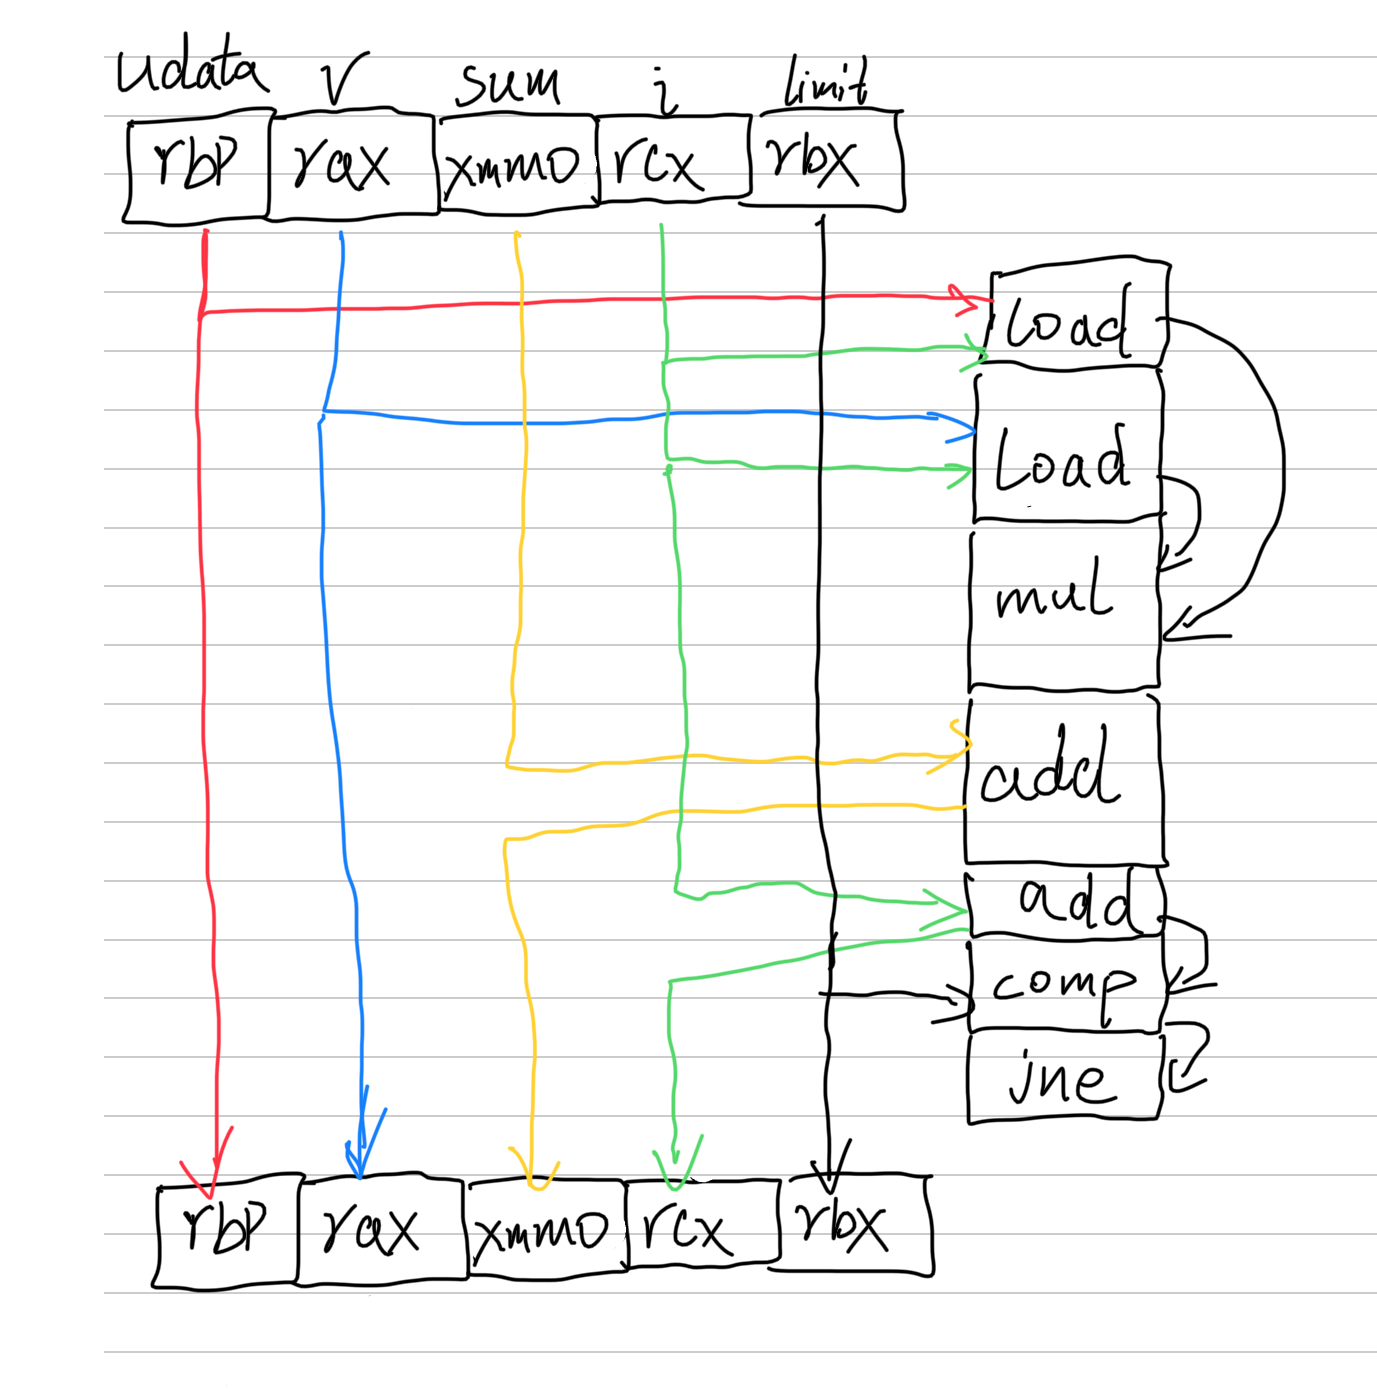 udata V sum i limit
rbP rax xmm0 rcx rbx
Load
Load
mul
add
add
comp
jne
rbP rax xmm0 rcx rbx